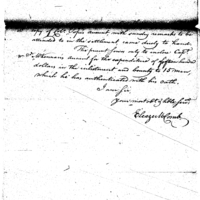 of Cap. account with sundry remarks to be
attended to in the settlement came duly to hand.
The present serves only to enclose Capt.
account for the expenditure of fifteen hundred
dollars in the inlistment and bounty to 15 men,
which he has authenticated with his oath.
I am Sir
your most Obt. Servt.